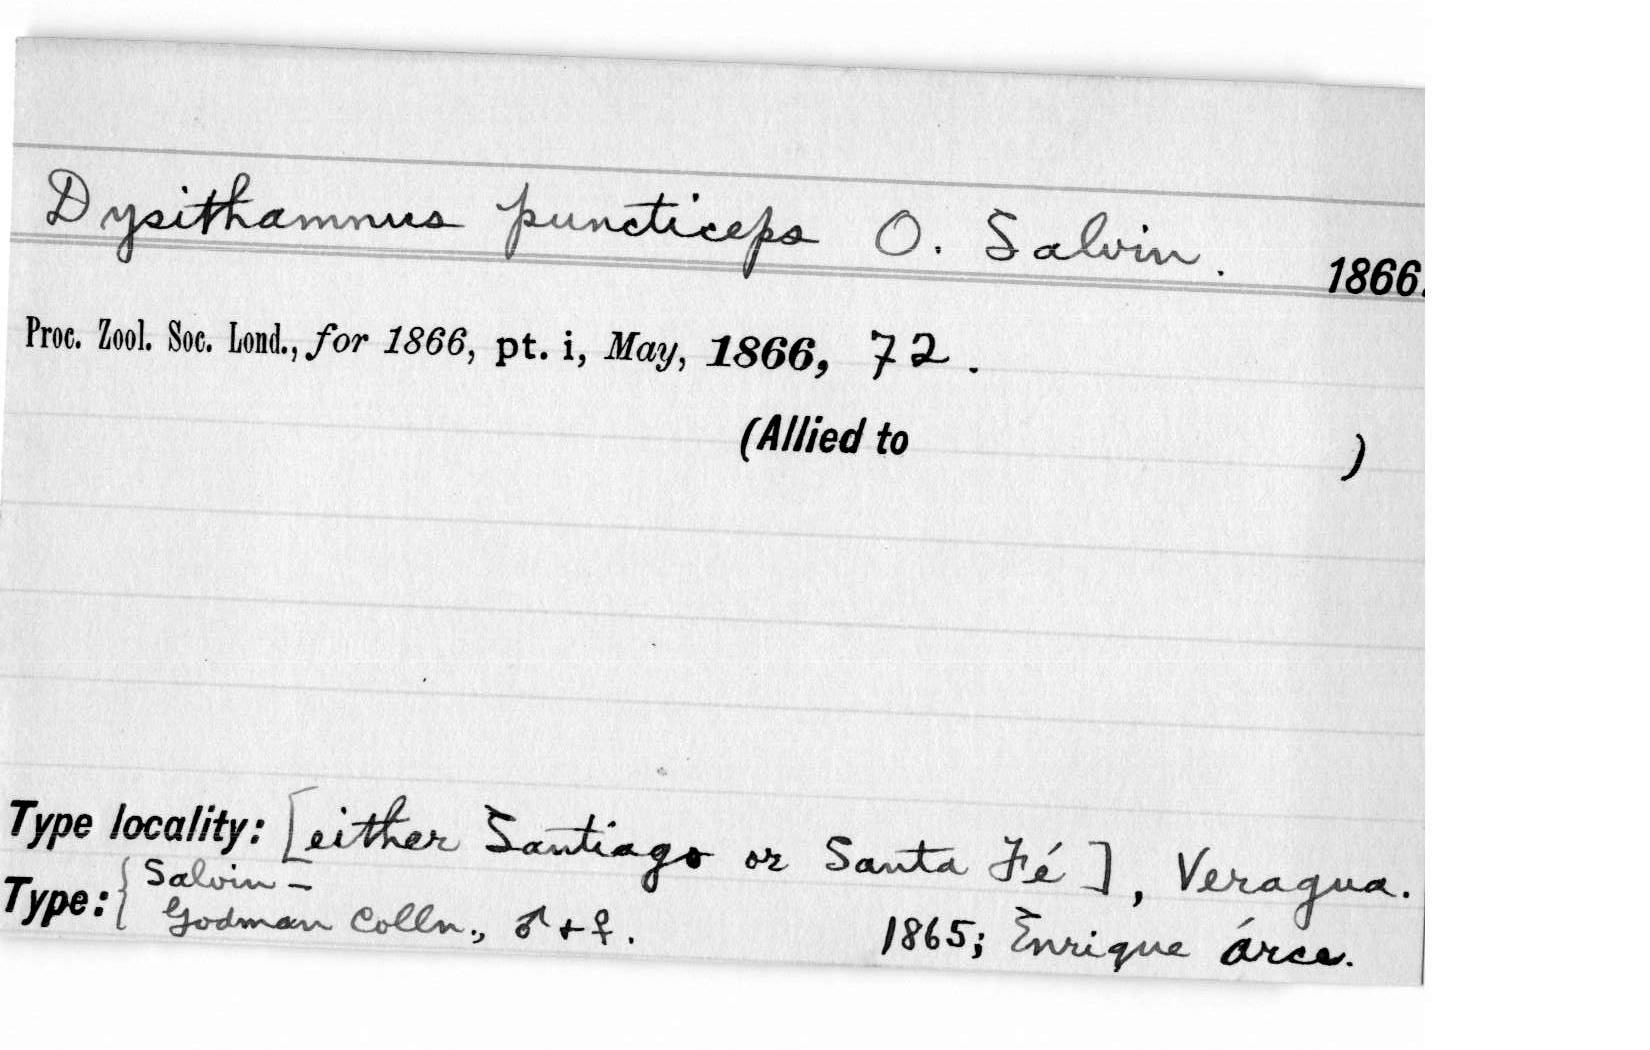 Dysithamnus puncticeps O. Salvin. 1866.
Proc. Zool. Soc. Lond., for 1866, pt. i, May, 1866, 72.
(Allied to )
Type locality: [either Santiago or Santa Fé], Veragua.
Type: { Salvin-
Godman Colln., ♂ + ♀. 1865; Enrique Árce.